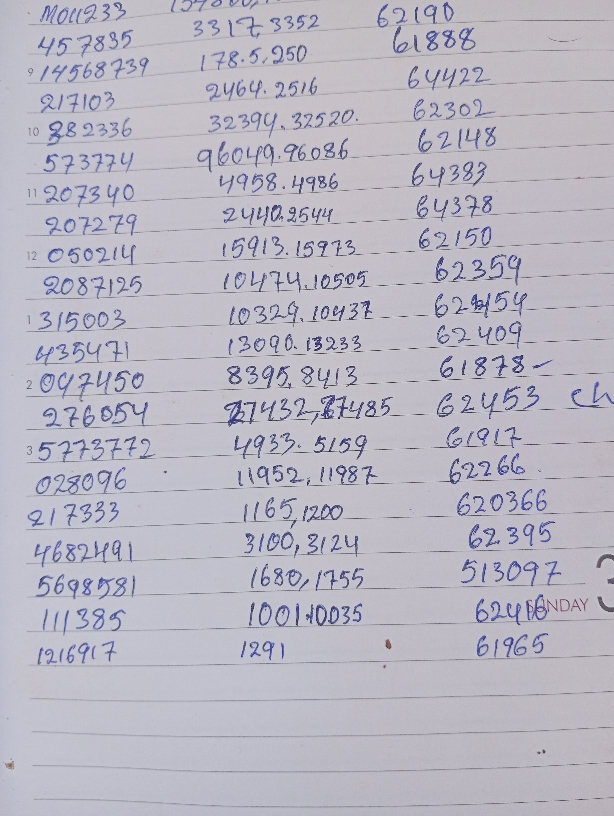 33173352 62190
457835 178.5.250 61888
9 14568739 2464.2516 64422
217103 32394.32520. 62302
10 382336 96049.96086 62148
573774 4958.4986 64383
11 207340 2440.2544 64378
207279 15913.15973 62150
12 050214 10474.10505 62359
2087125 10329.10437 62454
1 315003 13090.13233 62409
435471 8395,8413 61878-
2 047450 27432,27485 62453
276054 4933.5159 61917
3 5773772 11952,11987 62266
028096 1165,1200 620366
217333 3100,3124 62395
4682491 1680,1755 513097
5698581 10010035 62416 SUNDAY 3
111385 1291 61965
1216917